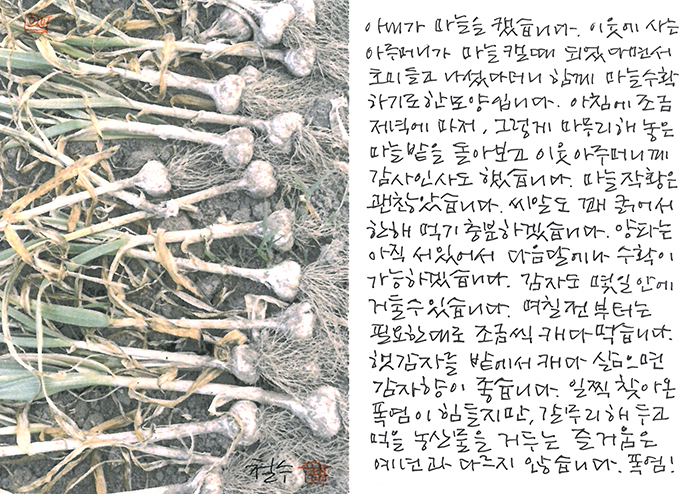 아내가 마늘을 캤습니다. 이웃에 사는
아주머니가 마늘 캘때 되었다면서
호미들고 나섰다더니 함께 마늘수확
하기로한모양입니다. 아침에 조금
저녁에 마저, 그렇게 마무리해 놓은
마늘밭을 돌아보고 이웃아주머니께
감사인사도 했습니다. 마늘작황은
괜찮았습니다. 씨알도 꽤 굵어서
한해 먹기 충분하겠습니다. 양파는
아직 서있어서 다음달에나 수확이
가능하겠습니다. 감자도 몇일안에
거둘수있습니다. 며칠전부터는
필요한대로 조금씩 캐다먹습니다.
햇감자를 밭에서 캐다 삶으면
감자향이 좋습니다. 일찍 찾아온
폭염이 힘들지만, 갈무리해 두고
먹을 농산물을 거두는 즐거움은
예년과 다르지 않습니다. 폭염!
철수